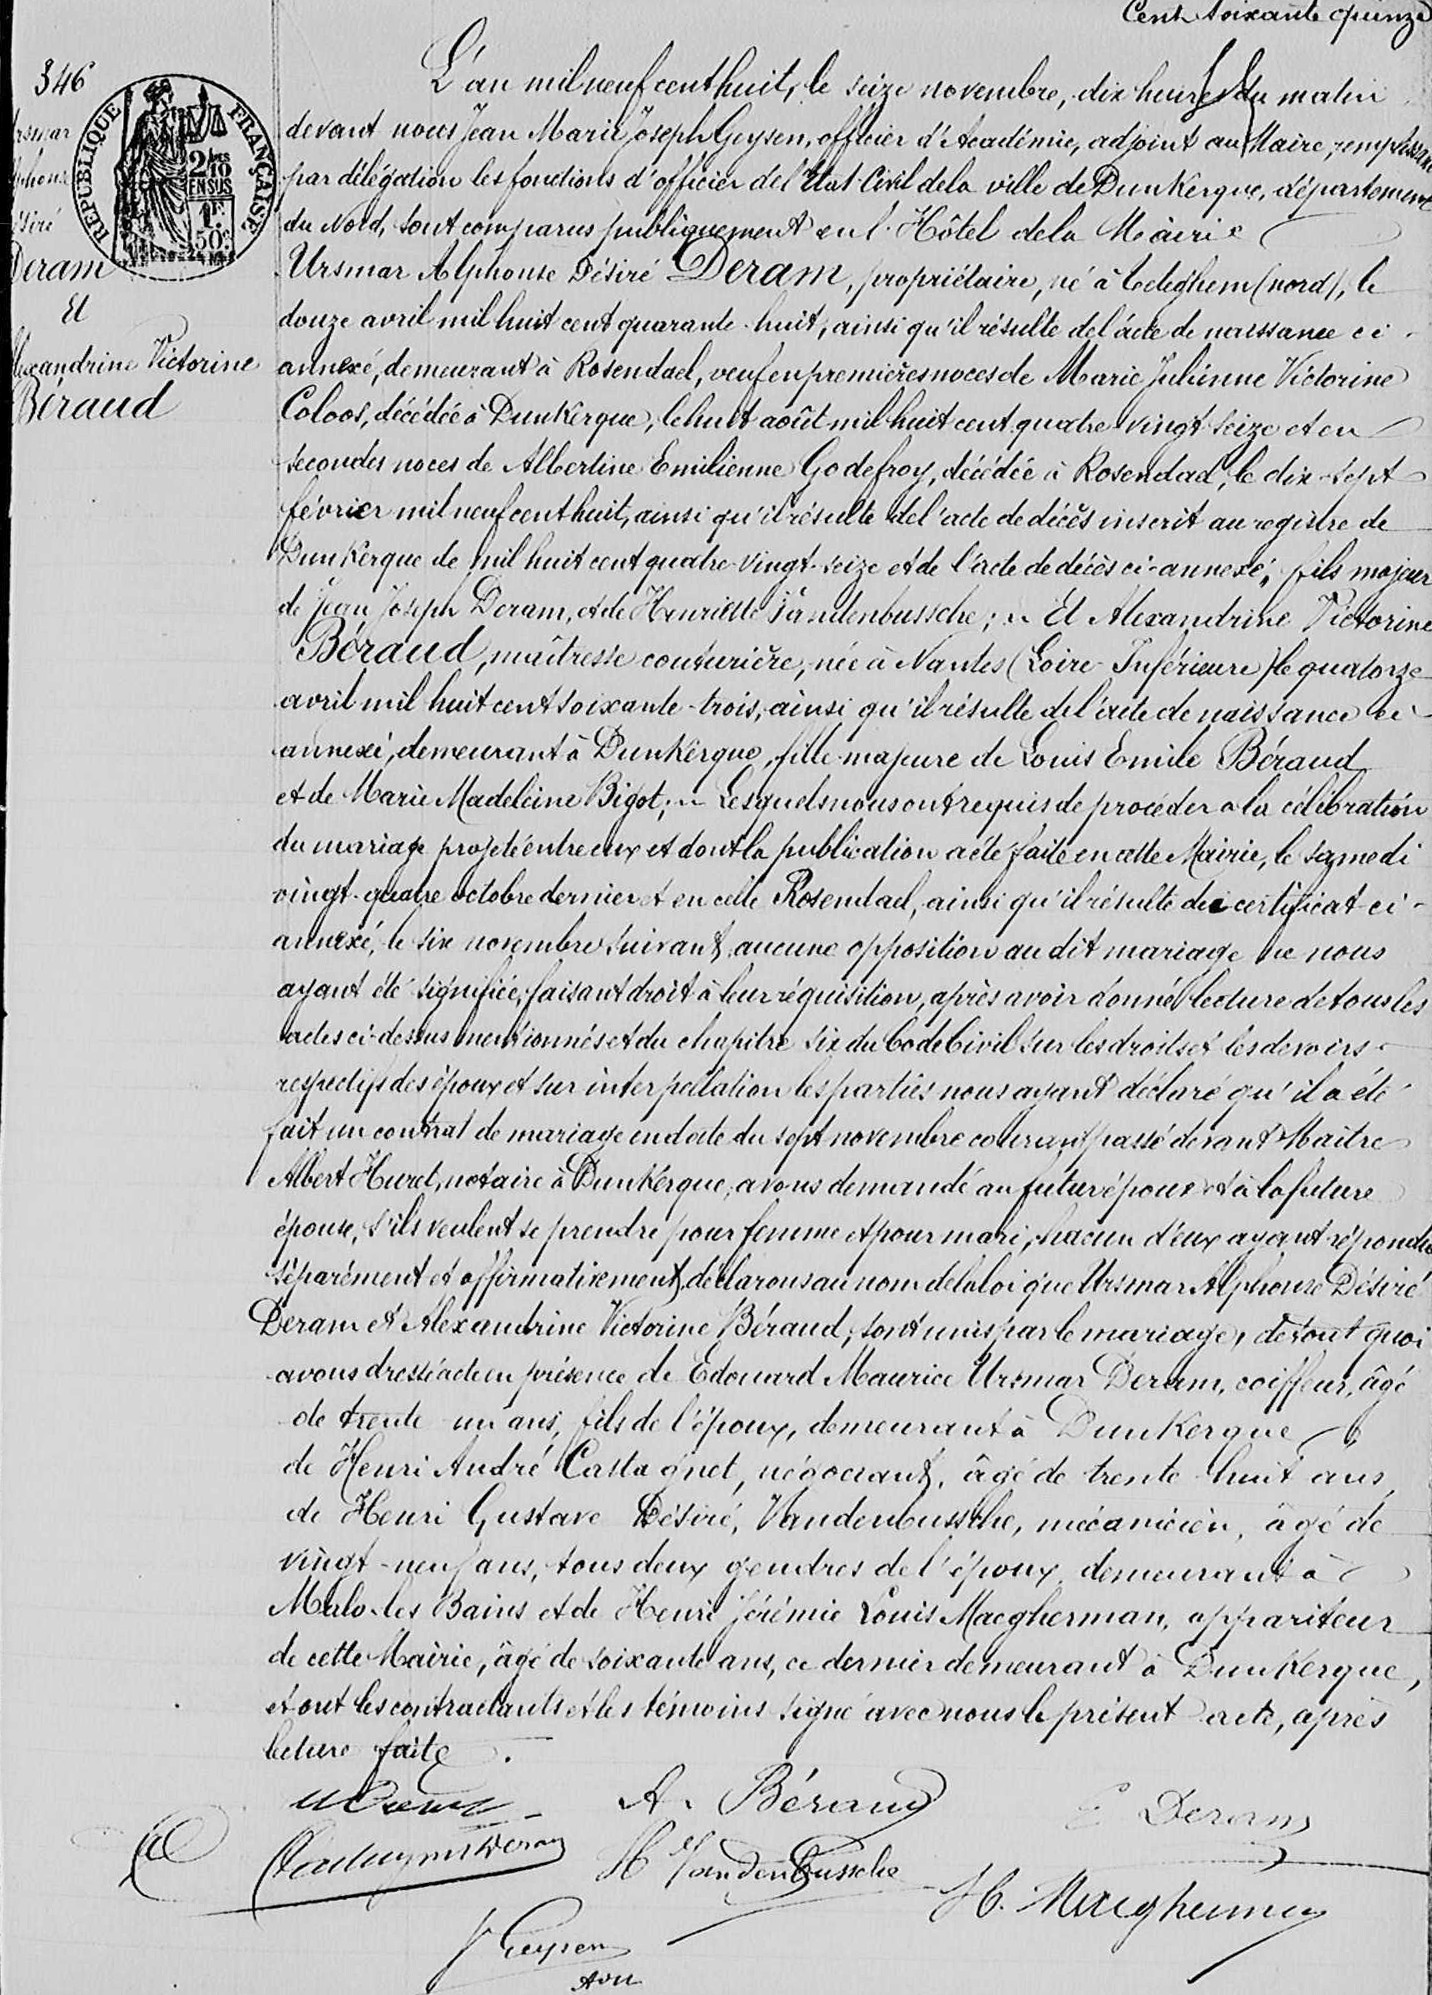 Cent soixante quinze
346
Ursmar
Alphonse
Désiré
Deram
Et
Alexandrine Victorine
Béraud
RÉPUBLIQUE FRANÇAISE
2/10
EN SUS
1F
50c
L'an mil neuf cent huit, le seize novembre, dix heures du matin
devant nous Jean Marie Joseph Geysen, officier d'Académie, adjoint au Maire, remplissant
par délégation les fonctions d'officier de l'Etat-Civil de la ville de Dunkerque, département
du Nord, sont comparus publiquement en l'Hôtel de la Mairie
Ursmar Alphonse Désiré Deram, propriétaire, né à (nord), le
douze avril mil huit cent quarante-huit, ainsi qu'il résulte de l'acte de naissance ci-
annexé, demeurant à Rosendael, veuf en premières noces de Marie Julienne Victorine
Coloos, décédée à Dunkerque, le huit août mil huit cent quatre vingt seize et en
secondes noces de Albertine Emilienne Godefroy, décédée à Rosendael, le dix-sept
février mil neuf cent huit, ainsi qu'il résulte de l'acte de décès inscrit au registre de
Dunkerque de mil huit cent quatre-vingt-seize et de l'acte de décès ci-annexé, fils majeur
de Jean Joseph Deram, et de Henriette Vandenbussche; Et Alexandrine Victorine
Béraud, maîtresse couturière, née à Nantes (Loire-Inférieure) le quatorze
avril mil huit cent soixante-trois, ainsi qu'il résulte de l'acte de naissance ci-
annexé, demeurant à Dunkerque, fille majeure de Louis Emile Béraud
et de Marie Madeleine Bigot; Lesquels nous ont requis de procéder à la célébration
du mariage projeté entre eux et dont la publication a été faite en cette Mairie, le samedi
vingt-quatre octobre dernier et en celle Rosendael, ainsi qu'il résulte du certificat ci-
annexé, le six novembre suivant, aucune opposition au dit mariage ne nous
ayant été signifiée, faisant droit à leur réquisition, après avoir donné lecture de tous les
actes ci-dessus mentionnés et du chapitre six du Code Civil sur les droits et les devoirs
respectifs des époux et sur interpellation les parties nous ayant déclaré qu'il a été
fait un contrat de mariage en date du sept novembre courant, passé devant Maître
Albert Huret, notaire à Dunkerque, avons demandé au futur époux et à la future
épouse, s'ils veulent se prendre pour femme et pour mari, chacun d'eux ayant répondu
séparément et affirmativement, déclarons au nom de la loi que Ursmar Alphonse Désiré
Deram et Alexandrine Victorine Béraud, sont unis par le mariage, de tout quoi
avons dressé acte en présence de Edouard Maurice Ursmar Deram, coiffeur, âgé
de trente-un ans, fils de l'époux, demeurant à Dunkerque
de Henri André Castagnet, négociant, âgé de trente-huit ans,
de Henri Gustave Désiré, Vandenbussche, mécanicien, âgé de
vingt-neuf ans, tous deux gendres de l'époux, demeurant à
Malo-les Bains et de Henri Jérémie Louis Macgherman, appariteur
de cette Mairie, âgé de soixante ans, ce dernier demeurant à Dunkerque,
et ont les contractants et les témoins signé avec nous le présent acte, après
lecture faite.
A. Béraud
E Deram
H Vandenbussche
H. Macgherman
J Geysen